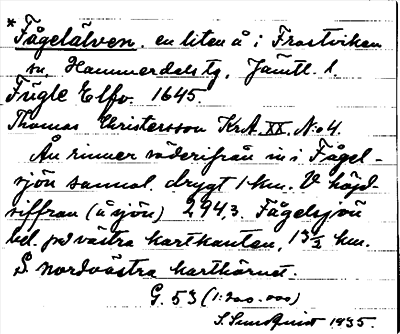 *Fågelälven. en liten å i Frostviken
sn, Hammerdals tg, Jämtl. l.
Fugle Elfo. 1645.
Thomas Christersson KrA. XX. No 4.
Ån rinner söderifrån in i Fågel-
sjön sannol. drygt 1 km. V höjd-
siffran (i sjön) 294,3. Fågelsjön
bel. på västra kartkanten, 13½ km.
S. nordvästra karthörnet.
G. 53 (1:200.000)
S. Sundquist 1935.